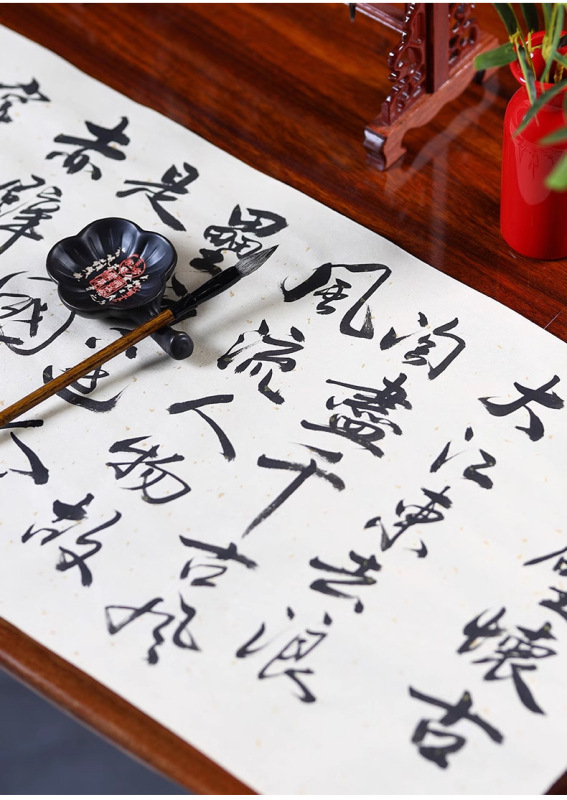 懷古
大江東去浪
淘盡千古風
風流人物故
壘邊人
是國
赤壁